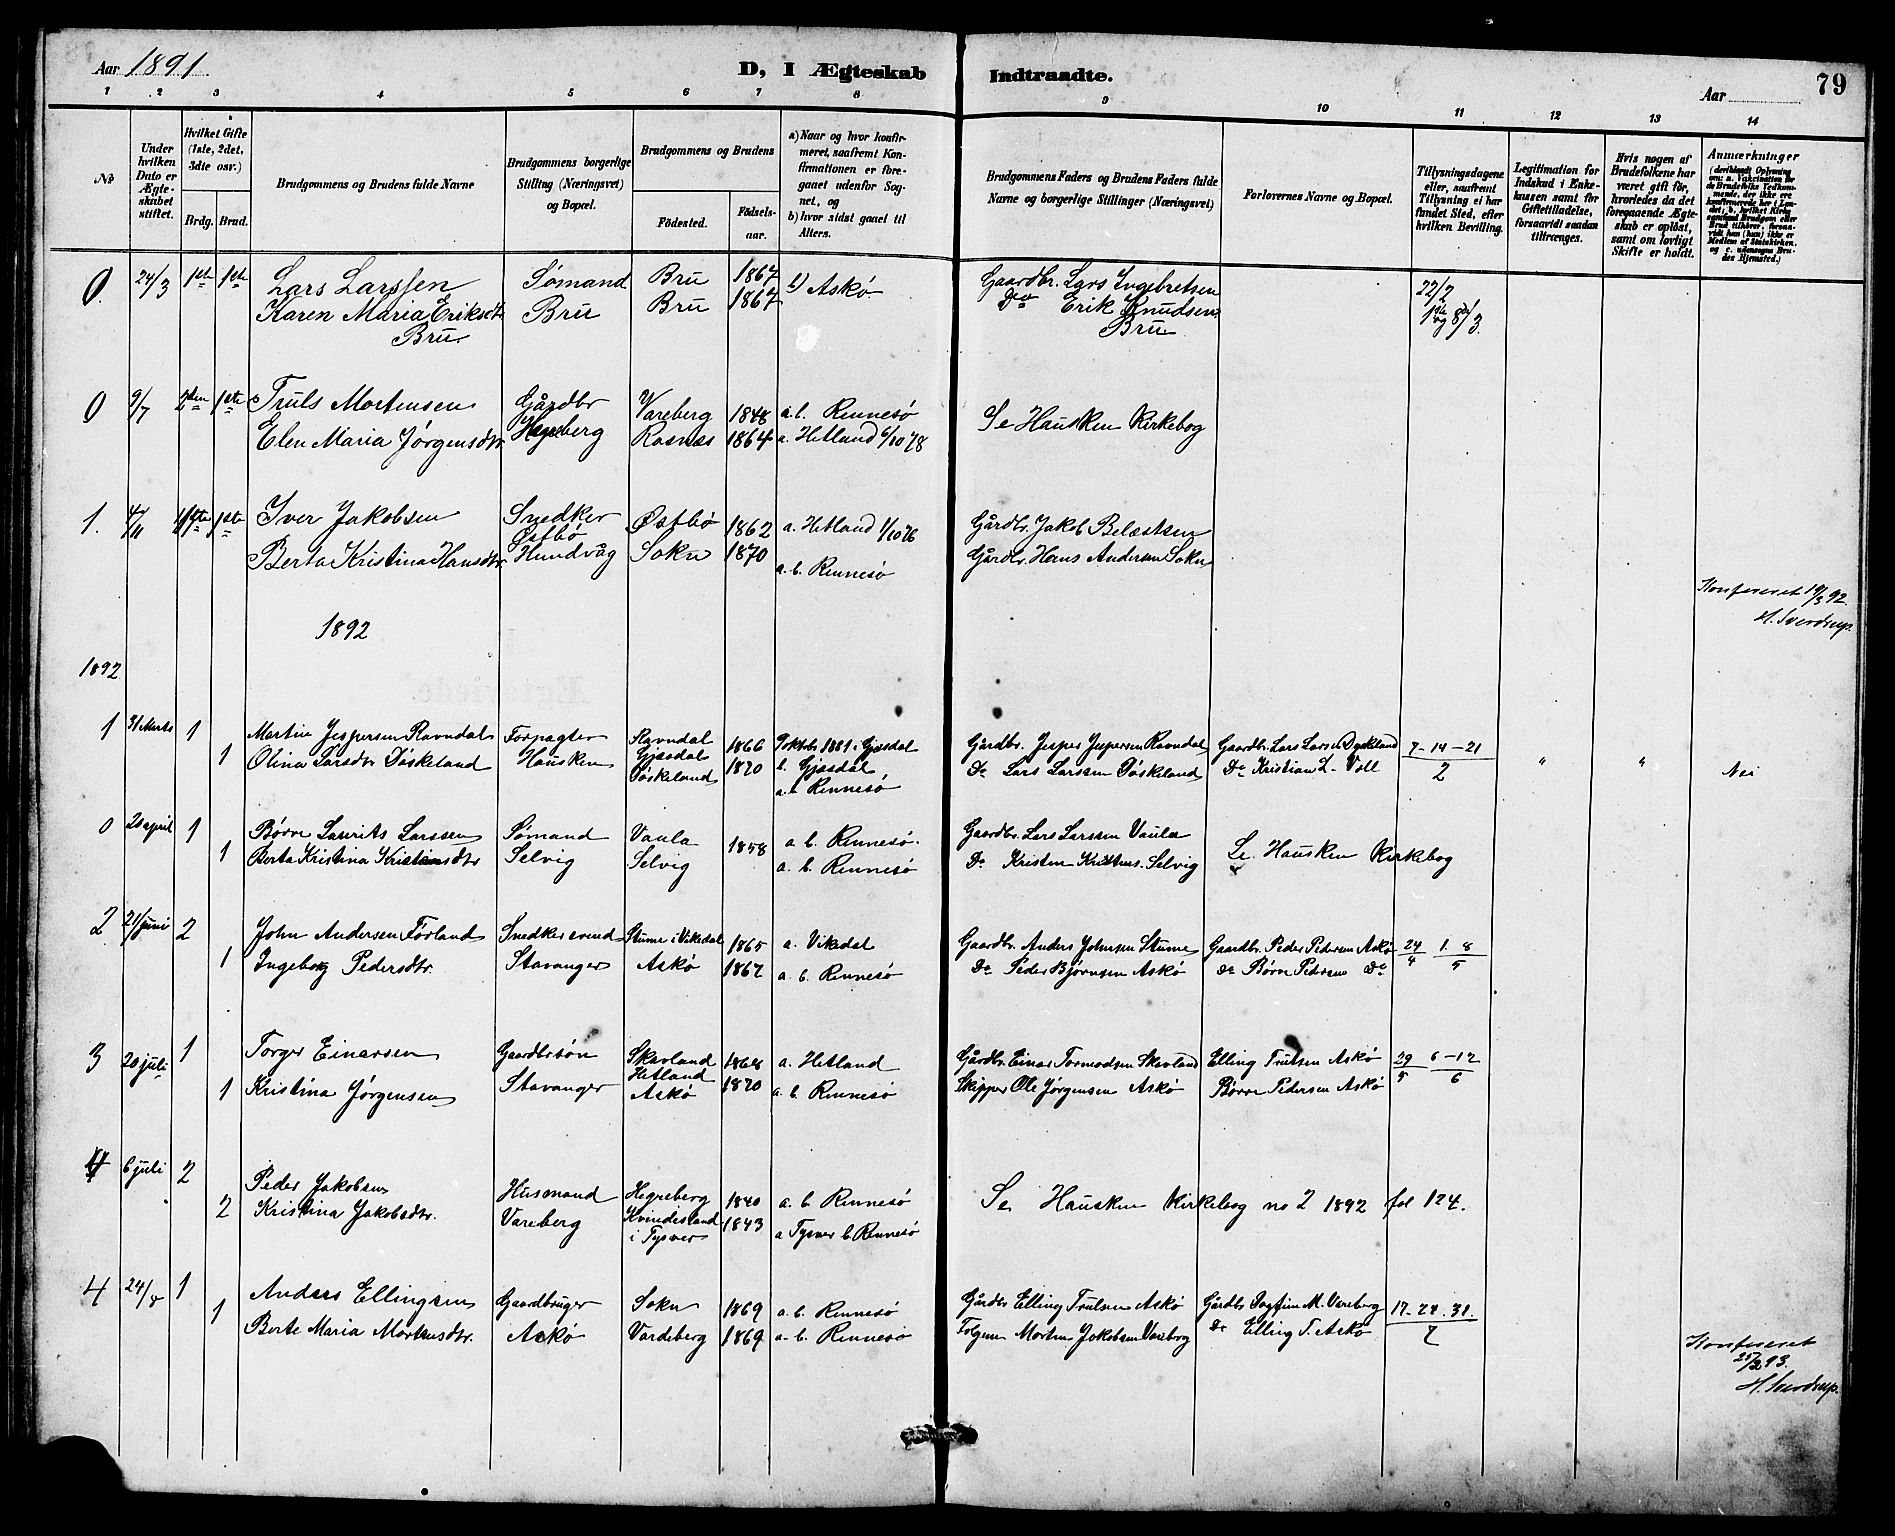 Aar 1891.
D, I Ægteskab Indtraadte.
Aar
79
1 2 3 4 5 6 7 8 9 10 11 12 13 14
No
Under hvilken Dato er Ægteskabet stiftet.
Hvilket Gifte (1ste, 2det, 3die osv.)
Brdg. Brud.
Brudgommens og Brudens fulde Navne
Brudgommens borgerlige Stilling (Næringsvei) og Bopæl.
Brudgommens og Brudens
Fødested.
Fødselsaar.
a) Naar og hvor konfirmeret, saafremt Konfirmationen er foregaaet udenfor Sognet, og
b) hvor sidst gaaet til Alters.
Brudgommens Faders og Brudens Faders fulde Navne og borgerlige Stillinger (Næringsvei)
Forlovernes Navne og Bopæl.
Tillysningsdagene eller, saafremt Tillysning ei har fundet Sted, efter hvilken Bevilling.
Legitimation for Indskud i Enkekassen samt for Giftetilladelse, forsaavidt saadan tiltrænges.
Hvis nogen af Brudefolkene har været gift før, hvorledes da det foregaaende Ægteskab er opløst, samt om lovligt Skifte er holdt.
Anmærkninger
0 24/3 1ste 1ste Lars Larssen Sømand Bru 1867 b) Askø Gaardbr. Lars Ingebretsen 22/2
Karen Maria Eriksdtr Bru Bru 1867 Do Erik Knudsen 1ste og 8de/3.
Bru Bru
0 9/7 2den 1ste Truls Mortensen Gårdbr Vareberg 1848 a.b. Rennesø Se Hausken Kirkebog
Elen Maria Jørgensdtr Hegreberg Rosnes 1864 a. Hetland 6/10 78
1. 4/11 1ste 1ste Iver Jakobsen Snedker Østbø 1862 a. Hetland 1/10 76 Gårdbr. Jakob
Østbø
Berta Kristina Hansdtr. Hundvåg Sokn 1870 a.b. Rennesø Gårdbr. Hans Andersen Sokn
Konfereret 19/3 92.
H. Sverdrup.
1892
1892
1 31 Marts 1 Martin Jespersen Ravndal Forpagter Ravndal 1866 9 oktbr 1881 i Gjesdal Gårdbr. Jesper Jespersen Ravndal Gaardbr. Lars Larsen Døskeland 7-14-21
1 Olina Larsdtr Døskeland Hausken Gjesdal 1870 b. Gjesdal Do Lars Larssen Døskeland Do Kristian L. Voll 2 " " Nei
Døskeland a.b Rennesø
0 20 april 1 Børre Laurits Larssen Sømand Vaula 1858 a b. Rennesø. Gaardbr. Lars Larssen Vaula
1 Berta Kristina Kristiansdtr Selvig Selvig a. b. Rennesø Do Kristen Selvig Se. Hausken Kirkebog
2 21/juni 2 John Andersen Førland Snedkersvend Stume i Vikedal 1865 a. Vikedal Gaardbr. Anders Johnsen Stume Gaardbr. Peder Pedersen Askø 24 1. 8
1 Ingeborg Pedersdtr. Stavanger Askø 1867 a b. Rennesø Do Peder Bjørnsen Askø Do Børre Pedersen Do 4 5
3 20 juli 1 Torger Einarsen Gaardbrsøn Skavland 1868 a. Hetland Gårdbr. Einar Tormodsen Skavland Elling Trulsen Askø 29 6-12
Hetland
1 Kristina Jørgensen Stavanger Askø 1870 a. b. Rennesø Skipper Ole Jørgensen Askø Børre Pedersen Askø 5 6
4 6 juli 2 Peder Jakobsen Husmand Hegreberg 1840 a. b Rennesø Se Hausken Kirkebog no 2 1892 fol 124.
2 Kristina Jakobsdtr. Vareberg Kvindesland 1843 a Tysver b. Rennesø
i Tysver
4 24/8 1 Anders Ellingsen Gaardbruger Sokn 1869 a. b. Rennesø Gårdbr Elling Trulsen Askø Gårdbr M. Vareberg 17-24-31.
1 Berte Maria Mortensdtr. Askø Vardeberg 1869 a. b. Rennesø Morten Jakobsen Vareberg Do Elling T. Askø 7
Konfereret
25/2 93.
H. Sverdrup.